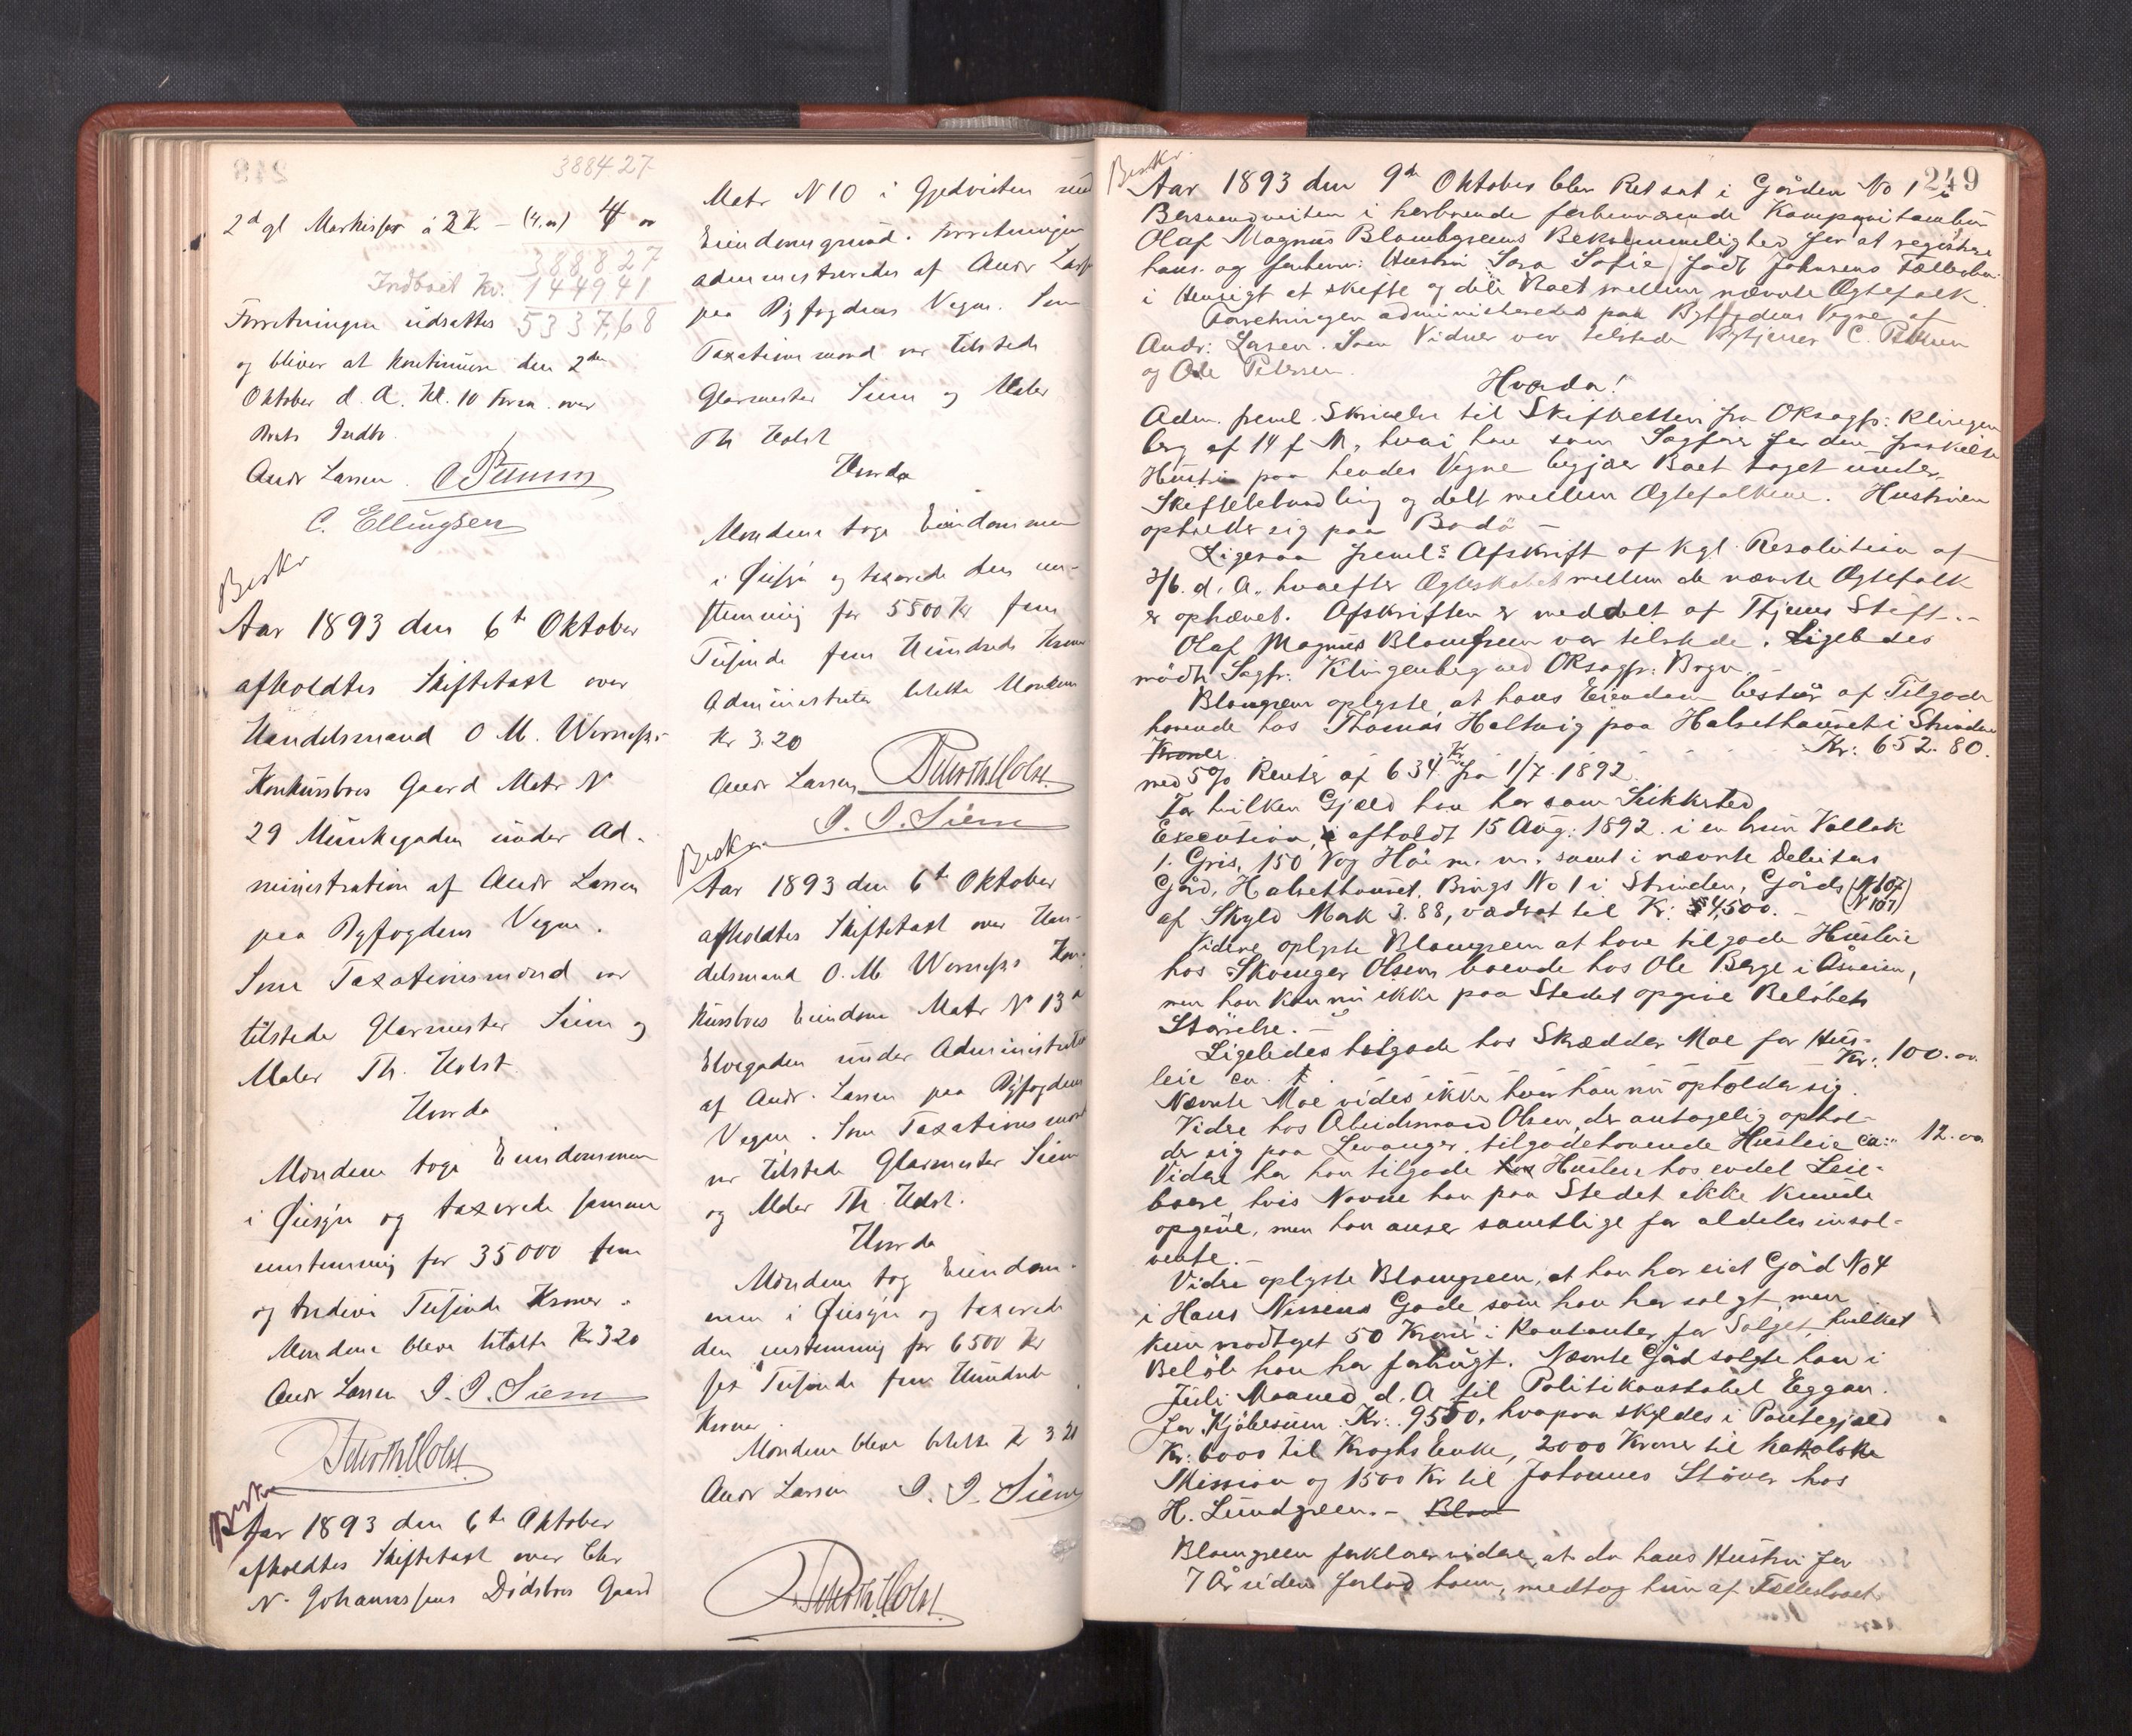 388427
2d gl Markisser á 2 Kr — (4,00) 4 00
388827
Indboet Kr. 144941
Forretningen udsattes 5337,68
og bliver at kontinuere den 2den
Oktober d. A. Kl. 10 Form. over
Indbo.
Andr Larsen. C Petersen
C. Ellingsen
Beskr
Aar 1893 den 6te Oktober
afholdtes Skiftetaxt over
Handelsmand O M. Werness
Konkursboes Gaard Matr N
29 Munkegaden under Ad-
ministration af Andr Larsen
paa Byfogdens Vegne.
Som Taxationsmænd var
tilstede Glarmester Siem og
Maler Th. Holst.
Hvorda
Mændene toge Eiendommen
i Øiesyn og taxerede samme
enstemmig for 35000 fem
og tredive Tusinde Kroner.
Mændene bleve betalte Kr 3 20
Andr Larsen P. P. Siem
Th. Holst.
Beskr
Aar 1893 den 6te Oktober
afholdtes Skiftetaxt over Chr
N. Johannessens Dødsboes Gaard
Matr N 10 i Gjedvesten med
Eiendomsgrund. Forretningen
administreredes af Andr Larsen
paa Byfogdens Vegne. Som
Taxationsmænd var tilstede
Glarmester Siem og Maler
Th Holst
Hvorda
Mændene toge Eiendommen
i Øiesyn og taxerede den en-
stemmig for 5500 Kr fem
Tusinde fem Hundrede Kroner
Administrator betalte Mændene
Kr 3.20
Andr Larsen Th. Holst.
P. P. Siem
Beskr
Aar 1893 den 6te Oktober
afholdtes Skiftetaxt over Han-
delsmand O. M Werness Kon-
kursboes Eiendom Matr N 13a
Elvegaden under Administration
af Andr. Larsen paa Byfogdens
Vegne. Som Taxationsmænd
var tilstede Glarmester Siem
og Maler Th. Holst.
Hvorda
Mændene tog Eiendom-
men i Øiesyn og taxerede
den enstemmig for 6500 Kr
sex Tusinde fem Hundrede
Kroner.
Mændene bleve betalte Kr 3 20
Andr Larsen P. P. Siem
Th. Holst.
249
Beskr.
Aar 1893 den 9de Oktober blev Ret sat i Gården No 1 i
i herboende forhenværende Kompanitambur
Olaf Magnus Blomgreens Bekvemmelighed for at registrere
hans og forhenv: Hustru Sara Sofie født Johnsens Fællesbo
i Hensigt at skifte og dele Boet mellem nævnte Ægtefolk.
Forretningen administreredes paa Byfogdens Vegne af
Andr: Larsen. Som Vidner var tilstede Bytjener C. Petersen
og Ole Petersen.
Hvorda!
Adm. freml. Skrivelse til Skifteretten fra OKsagfr: Klingen
berg af 14 f M, hvori han som Sagfører for den fraskilte
Hustru paa hendes Vegne begjær Boet taget under
Skiftebehandling og delt mellem Ægtefolkene. Hustruen
opholder sig paa Bodö —
Ligesaa freml: Afskrift af Kgl. Resolution af
3/6. d. A., hvorefter Ægteskabet mellem de nævnte Ægtefolk
er ophævet. Afskriften er meddelt af Thjems Stift. —
Olaf Magnus Blomgreen var tilstede. Ligeledes
mødte Sagfr. Klingenberg ved OKsagfr: Bryn. —
Blomgreen oplyste, at hans Eiendom bestaar af Tilgode
havende hos Thomas Heltvig paa Halsethauset i Strinden
Kroner Kr: 652. 80.
med 5% Renter af 634 Kr fra 1/7 1892.
For hvilken Gjæld han har som Sikkerhed
Execution, afholdt 15 Aug: 1892. i en brun Vallak
1. Gris, 150 Vog Høi m. m. samt i nævnte Debitors
Gård, Halsethauset. Brugs No 1 i Strinden, Gårds (N 107)
af Skyld Mark 3.88, vædsat til Kr: 4,500. — (N 107)
Videre oplyste Blomgreen at have tilgode Husleie
hos Olsen boende hos Ole Berge i Asveien,
men han kan nu ikke paa Stedet opgive Beløbets
Størrelse. —
Ligeledes tilgode hos Skrædder Moe for Hus-
leie ca. Kr: 100. 00
Nævnte Moe vides ikke hvor han nu opholder sig.
Videre hos Arbeidsmand Olsen, der antagelig ophol-
der sig paa Levanger, tilgodehavende Husleie ca: 12. 00
Videre har han tilgode hos Husleie hos endel Leie-
boere, hvis Navne han paa Stedet ikke kunde
opgive, men han anser samtlige for aldeles insol-
vente. —
Videre oplyste Blomgreen, at han har eiet Gård No 4
i Hans Nissens Gade, som han har solgt, men
kun modtaget 50 Kroner i Kontanter for Salget, hvilket
Beløb han har forbrugt. Nævnte Gård solgte han i
Juli Maaned d. A til Politikonstabel Eggan.
for Kjøbesum Kr: 9550, hvorpaa skyldes i Pantegjæld
Kr: 6000 til Kroghs Enke, 2000 Kroner til katolske
Mission og 1500 Kr til Johannes Støver hos
H. Lundgreen. — Blom
Blomgreen forklarer videre, at da hans Hustru for
7 År siden forlod ham, medtog hun af Fællesboet